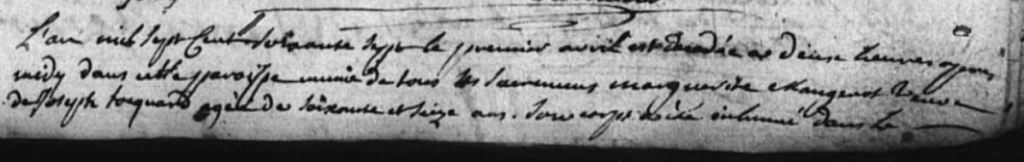 L'an mil sept Cent soixante sept le premier avril est decedée a deux heures apres
midy dans cette paroisse munie de tous les sacremens marguerite Maugenot veuve
de joseph toquard agée de soixante et seize ans. son corps a été inhumé dans le